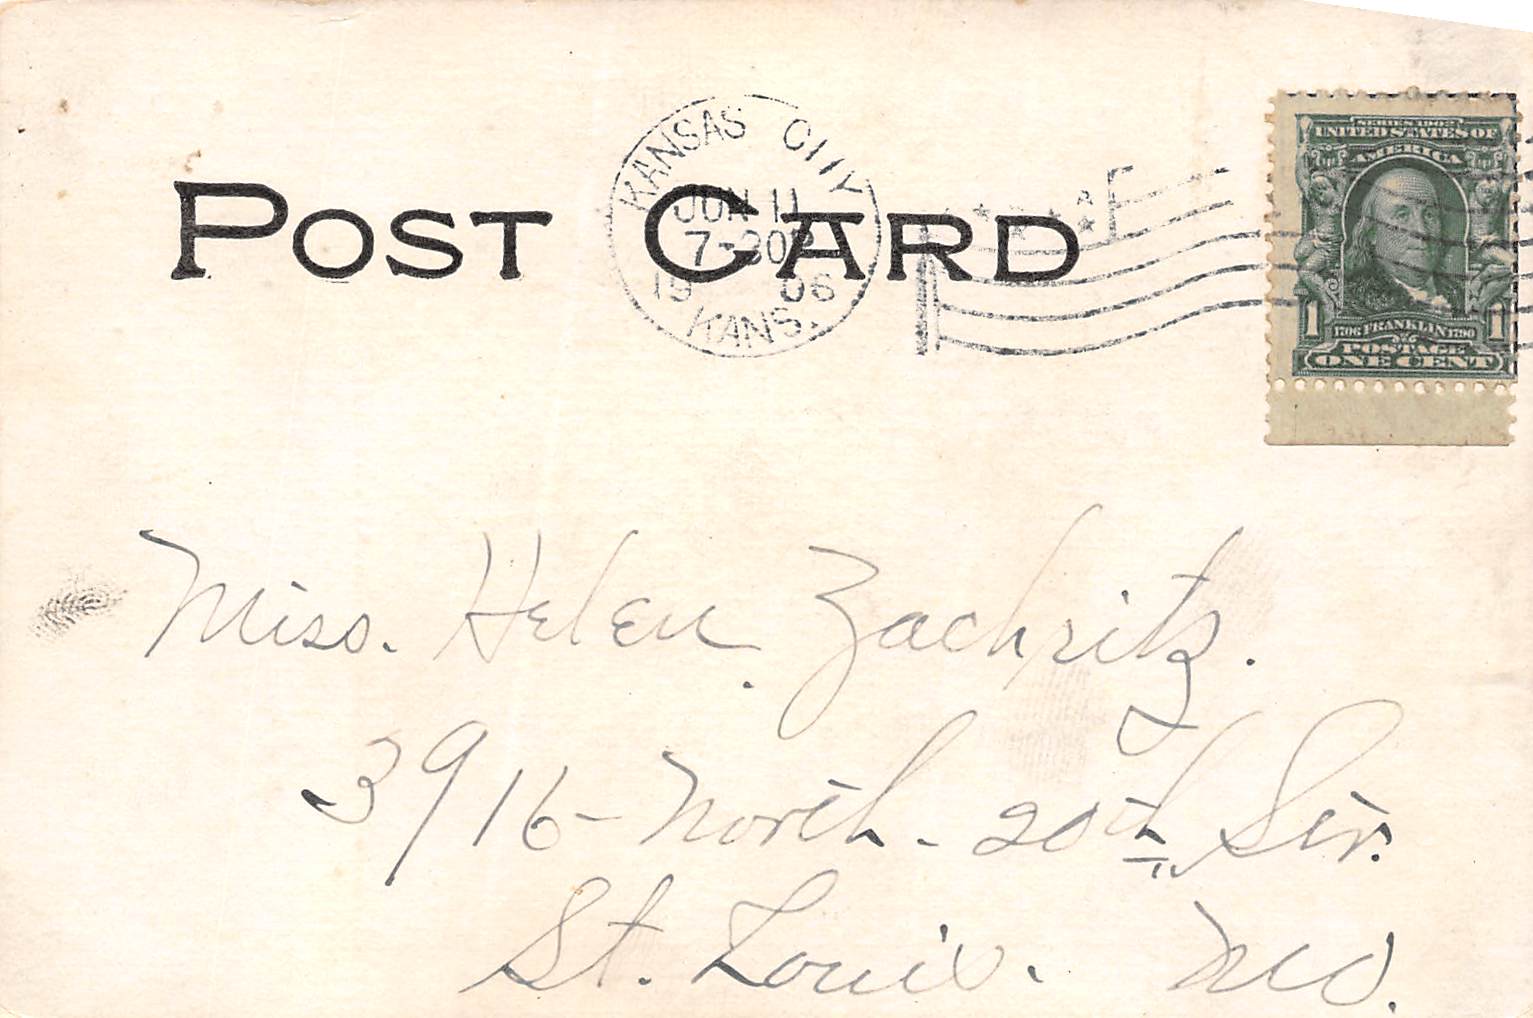 POST CARD
KANSAS CITY
JUN 11
7-30P
1906
KANS.
SERIES 1902
UNITED STATES OF
AMERICA
1 1706 FRANKLIN 1790 1
POSTAGE
ONE CENT
Miss. Helen. Zachritz.
3916 - North - 20th Str.
St. Louis. Mo.